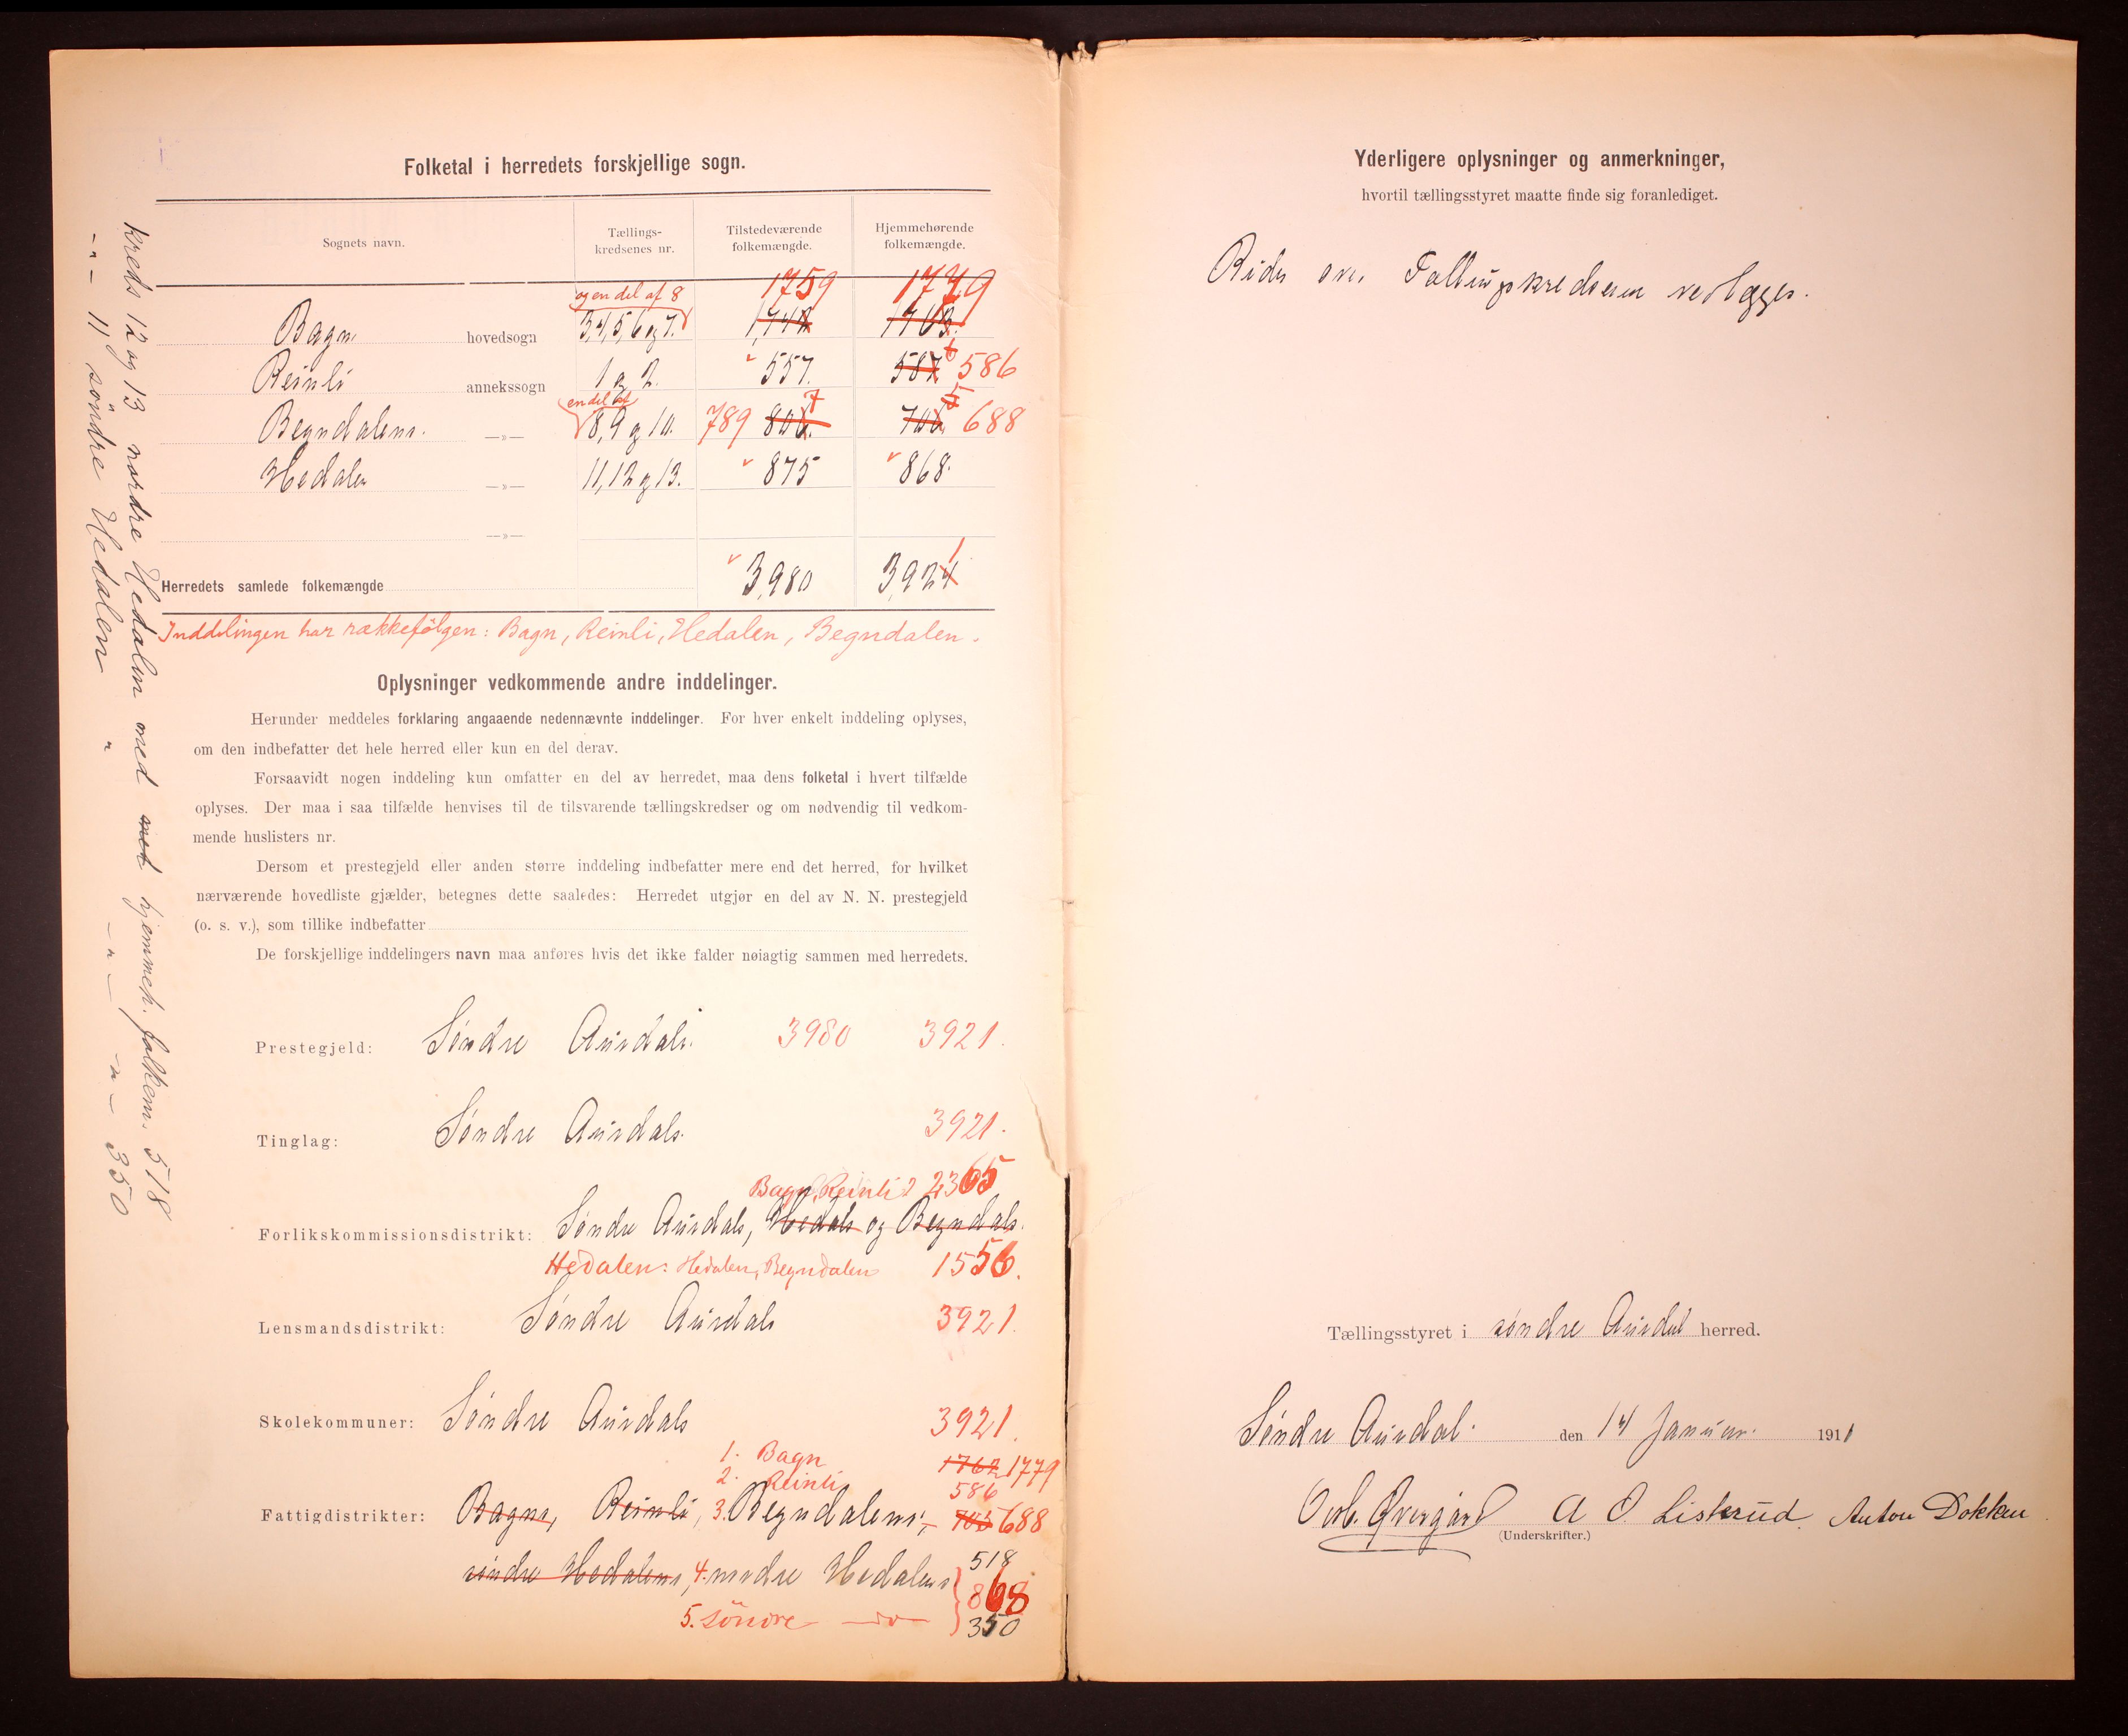 Folketal i herredets forskjellige sogn.
Sognets navn. Tællings-kredsenes nr. Tilstedeværende folkemængde. Hjemmehørende folkemængde.
og en del af 8 1759 1779
Bagn hovedsogn 3,4,5,6 og 7.
Reinli annekssogn 1 og 2. 557. 587 6 586
en del af
Begndalens. —»— 8,9 og 10. 789 806. 7 706 5 688
Hedalen —»— 11,12 og 13. 875 868.
—»—
Herredets samlede folkemængde 3,980 3,924 1
Inddelingen har rækkefølgen: Bagn, Reinli, Hedalen, Begndalen.
Oplysninger vedkommende andre inddelinger.
Herunder meddeles forklaring angaaende nedennævnte inddelinger. For hver enkelt inddeling oplyses,
om den indbefatter det hele herred eller kun en del derav.
Forsaavidt nogen inddeling kun omfatter en del av herredet, maa dens folketal i hvert tilfælde
oplyses. Der maa i saa tilfælde henvises til de tilsvarende tællingskredser og om nødvendig til vedkom-
mende huslisters nr.
Dersom et prestegjeld eller anden større inddeling indbefatter mere end det herred, for hvilket
nærværende hovedliste gjælder, betegnes dette saaledes: Herredet utgjør en del av N. N. prestegjeld
(o. s. v.), som tillike indbefatter
De forskjellige inddelingers navn maa anføres hvis det ikke falder nøiagtig sammen med herredets.
Prestegjeld: Søndre Aurdals. 3980 3921.
Tinglag: Søndre Aurdals. 3921.
Bagn, Reinli 2365
Forlikskommissionsdistrikt: Søndre Aurdals, Hedals og Begndals.
Hedalen: Hedalen, Begndalen 1556.
Lensmandsdistrikt: Søndre Aurdals 3921.
Skolekommuner: Søndre Aurdals 3921.
1. Bagn 1762 1779
2. Reinli 586
Fattigdistrikter: Bagns, Reinli, 3. Begndalens, 705 688
søndre Hedalens, 4. nordre Hedalens 518
868
5. søndre —do— 350
Kreds 12 og 13 nordre Hedalen med met hjemmeh. folkem. 518
-"- 11 søndre Hedalen " -"- -"- 350
Yderligere oplysninger og anmerkninger,
hvortil tællingsstyret maatte finde sig foranlediget.
Rids over Tællingskredserne vedlægges.
Tællingsstyret i søndre Aurdal herred.
Søndre Aurdal. den 14 Januar. 1911
Øvergård A O. Liskrud. Anton Dokken
(Underskrifter.)